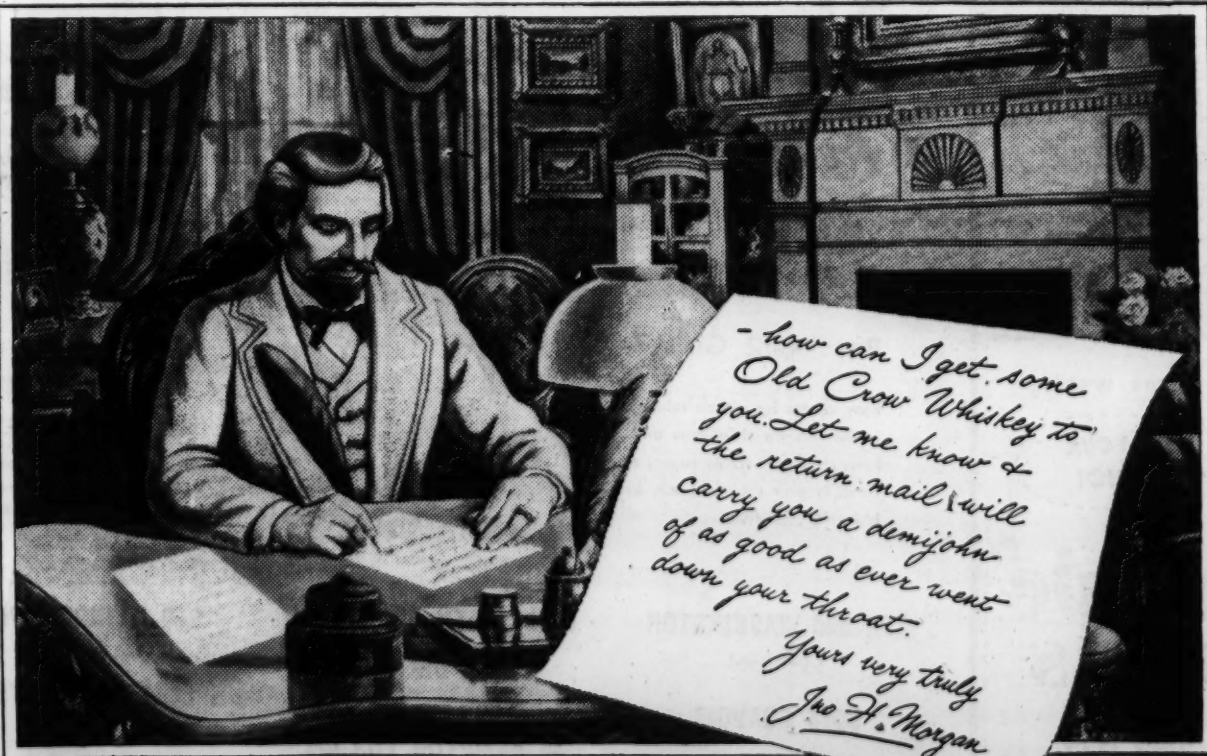 - how can I get some
Old Crow Whiskey to
you. Let me know &
the return mail will
carry you a demijohn
of as good as ever went
down your throat.
Yours very truly
Jno H. Morgan